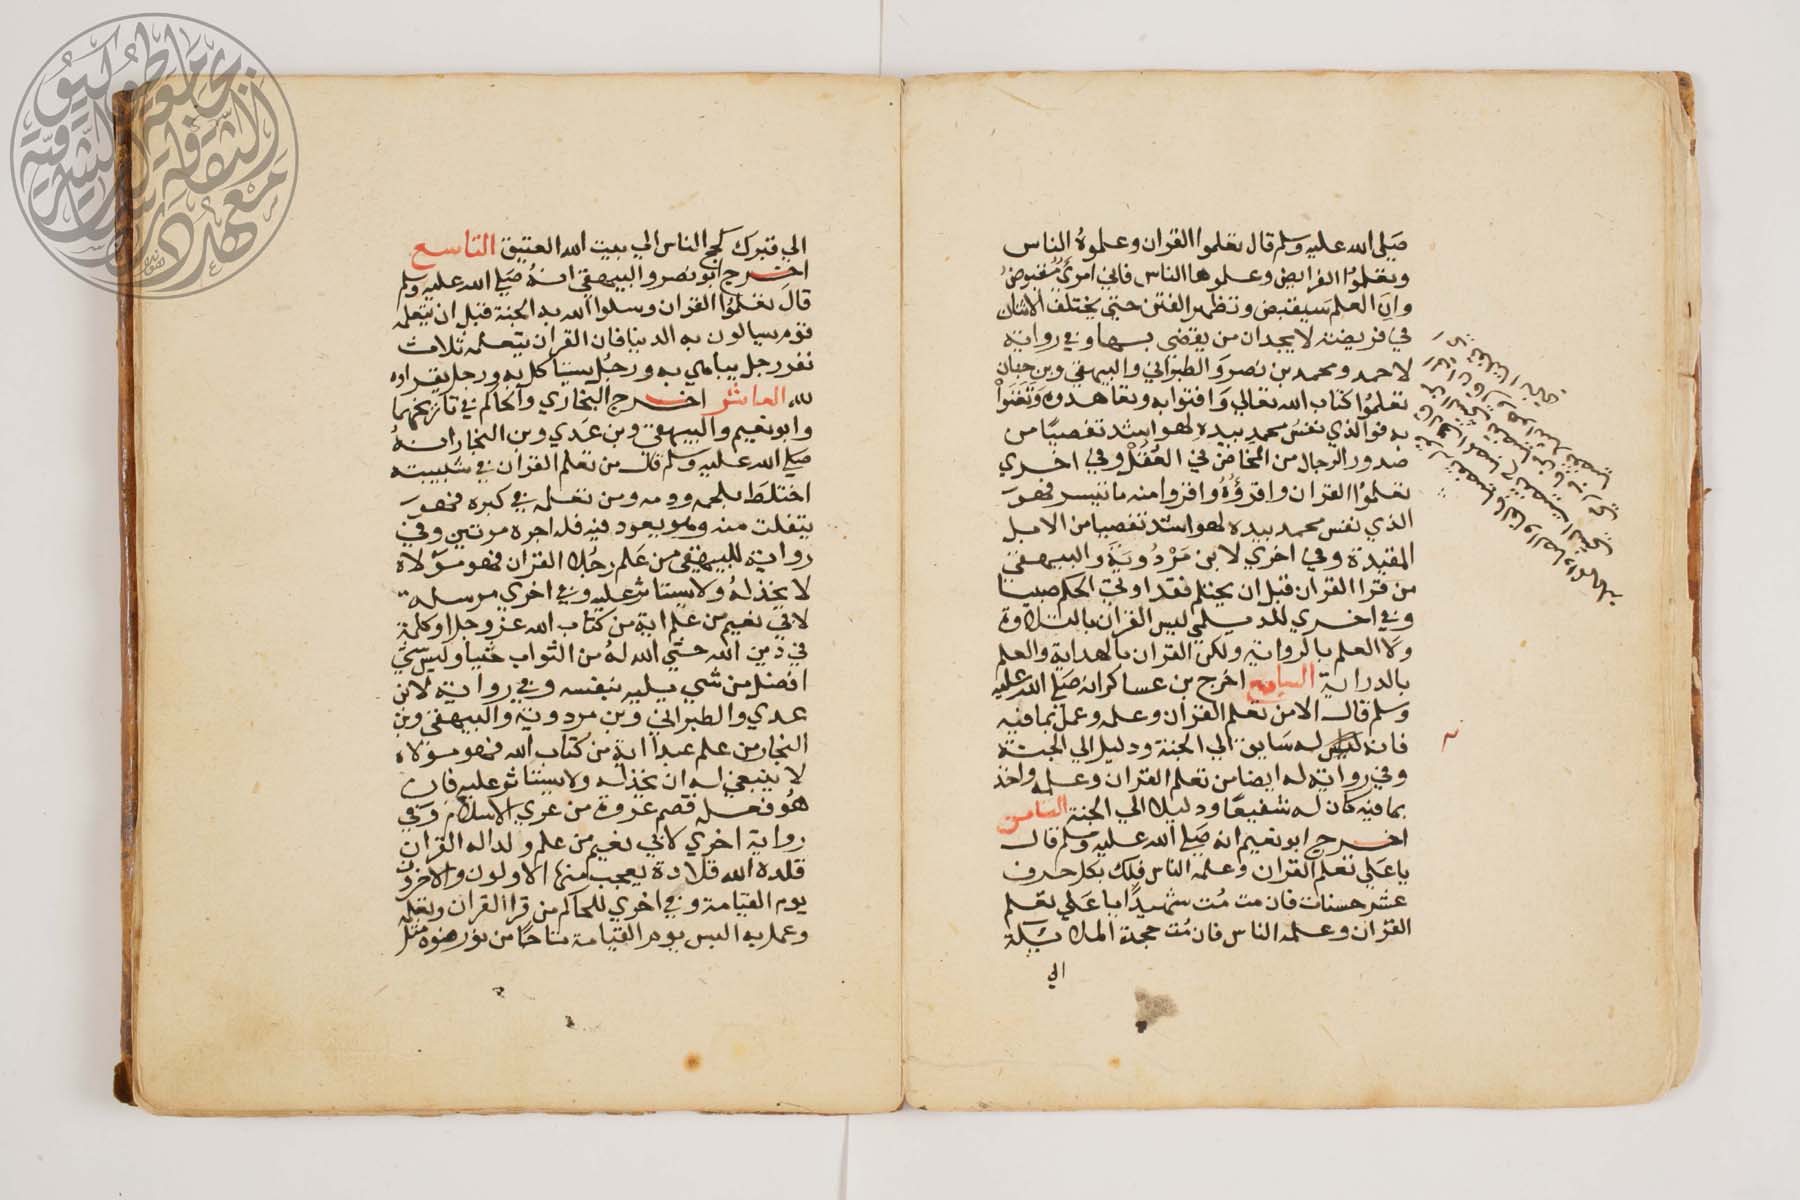 صلى الله عليه وسلم قال تعلموا القران وعلموه الناس
وتعلموا الفرايض وعلموها الناس فاني امرئ مقبوض
وان العلم سيقبض وتظهر الفتن حتى يختلف الاثنان
في فريضة لا يجدان من يقضي بها وفي رواية
لاحمد ومحمد بن نصر والطبراني والبيهقي وبن حبان
تعلموا كتاب الله تعالى وافتوا به وتعاهدوه وتغنوا
به فوالذي نفس محمد بيده لهو اشد تفصيا من
صدور الرجال من المخاض في العقل وفي اخري
تعلموا القران واقرؤه وافزوا منه ما تيسر فهو
الذي نفس محمد بيده لهو اشد تفصيا من الابل
المقيدة وفي اخري لابن مردوية والبيهقي
من قرا القران قبل ان يحتلم فقد اوتي الحكم صبيا
وفي اخري للديلمي ليس القران بالتلاوة
ولا العلم بالرواية ولكن القران بالهداية والعلم
بالدراية السابع اخرج بن عساكر انه صلى الله عليه
وسلم قال الا من تعلم القران وعلمه وعمل بما فيه
فانه له سايق الي الجنة ودليل الي الجنة
وفي رواية له ايضا من تعلم القران وعلمه واخذ
بما فيه كان له شفيعا ودليلا الي الجنة الثامن
اخرج ابو نعيم انه صلى الله عليه وسلم قال
يا علي تعلم القران وعلمه الناس فلك بكل حرف
عشر حسنات فان مت مت شهيدا يا علي تعلم
القران وعلمه الناس فان مت حجت الملايكة
الي
الي قبرك كحج الناس الي بيت الله العتيق التاسع
اخرج ابو نصر والبيهقي انه صلى الله عليه وسلم
قال تعلموا القران وسلوا الله به الجنة قبل ان يتعلمه
قوم يسالون به الدنيا فان القران يتعلمه ثلاث
نفر رجل يباهي به ورجل يستاكل به ورجل يقراه
لله العاشر اخرج البخاري والحاكم في تاريخهما
وابو نعيم والبيهقي وبن عدي وبن النجار انه
صلى الله عليه وسلم قال من تعلم القران في شبيبته
اختلط بلحمه ودمه ومن تعلمه في كبره فهو
يتفلت منه وهو يعود فيه فله اجره مرتين وفي
رواية للبيهقي من علم رجلا القران فهو مولاه
لا يخذله ولا يستاثر عليه وفي اخري مرسلة
لابي نعيم من علم اية من كتاب الله عز وجل او كلمة
في دين الله حثي الله له من الثواب حثيا وليس شي
افضل من شي يليه بنفسه وفي رواية لابن
عدي والطبراني وبن مردوية والبيهقي وبن
النجار من علم عبدا اية من كتاب الله فهو مولاه
لا ينبغي له ان يخذله ولا يستاثر عليه فان
هو فعله قصم عروة من عري الاسلام وفي
رواية اخري لابي نعيم من علم ولدا له القران
قلده الله قلادة يعجب منها الاولون والاخرون
يوم القيامة وفي اخري للحاكم من قرا القران وتعلمه
وعمل به البس يوم القيامة تاجا من نور ضوءه مثل